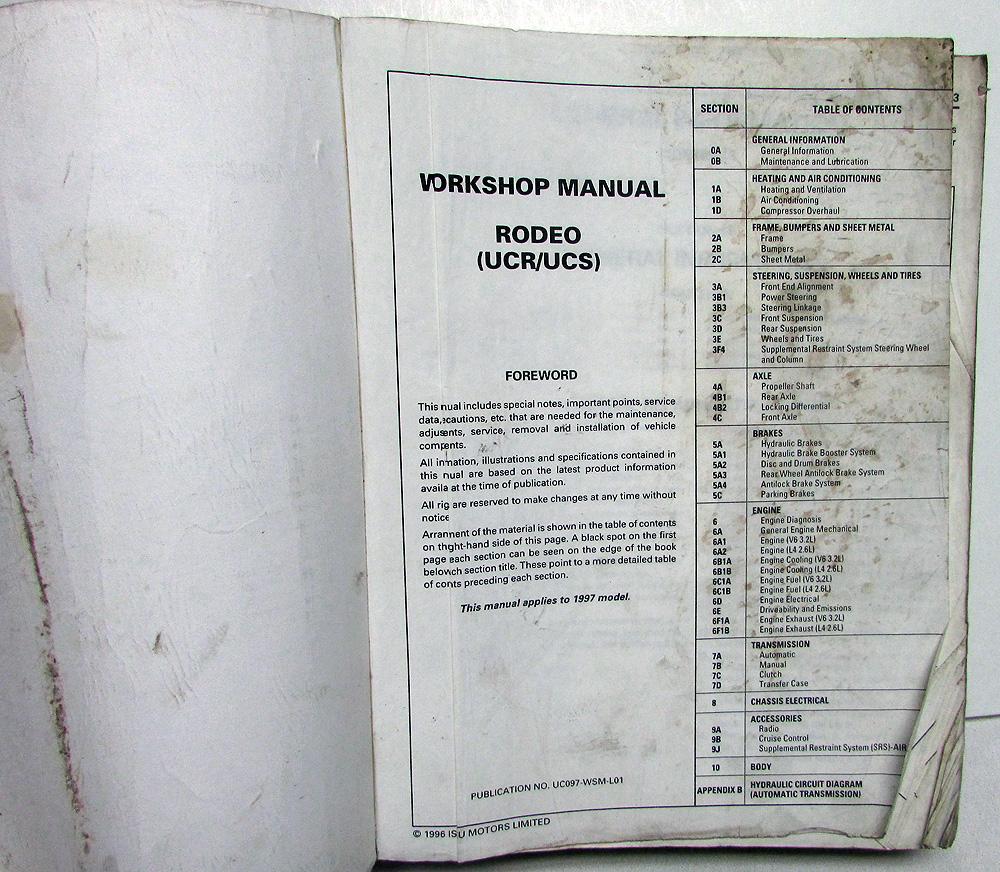 WORKSHOP MANUAL
RODEO
(UCR/UCS)
FOREWORD
This nual includes special notes, important points, service
data, cautions, etc. that are needed for the maintenance,
adjusents, service, removal and installation of vehicle
compents.
All inmation, illustrations and specifications contained in
this nual are based on the latest product information
availa at the time of publication.
All rig are reserved to make changes at any time without
notice
Arranment of the material is shown in the table of contents
on thght-hand side of this page. A black spot on the first
page each section can be seen on the edge of the book
belowch section title. These point to a more detailed table
of conts preceding each section.
This manual applies to 1997 model.
PUBLICATION NO. UC097-WSM-L01
© 1996 ISU MOTORS LIMITED
SECTION TABLE OF CONTENTS
GENERAL INFORMATION
0A General Information
0B Maintenance and Lubrication
HEATING AND AIR CONDITIONING
1A Heating and Ventilation
1B Air Conditioning
1D Compressor Overhaul
FRAME, BUMPERS AND SHEET METAL
2A Frame
2B Bumpers
2C Sheet Metal
STEERING, SUSPENSION, WHEELS AND TIRES
3A Front End Alignment
3B1 Power Steering
3B3 Steering Linkage
3C Front Suspension
3D Rear Suspension
3E Wheels and Tires
3F4 Supplemental Restraint System Steering Wheel
and Column
AXLE
4A Propeller Shaft
4B1 Rear Axle
4B2 Locking Differential
4C Front Axle
BRAKES
5A Hydraulic Brakes
5A1 Hydraulic Brake Booster System
5A2 Disc and Drum Brakes
5A3 Rear Wheel Antilock Brake System
5A4 Antilock Brake System
5C Parking Brakes
ENGINE
6 Engine Diagnosis
6A General Engine Mechanical
6A1 Engine (V6 3.2L)
6A2 Engine (L4 2.6L)
6B1A Engine Cooling (V6 3.2L)
6B1B Engine Cooling (L4 2.6L)
6C1A Engine Fuel (V6 3.2L)
6C1B Engine Fuel (L4 2.6L)
6D Engine Electrical
6E Driveability and Emissions
6F1A Engine Exhaust (V6 3.2L)
6F1B Engine Exhaust (L4 2.6L)
TRANSMISSION
7A Automatic
7B Manual
7C Clutch
7D Transfer Case
8 CHASSIS ELECTRICAL
ACCESSORIES
9A Radio
9B Cruise Control
9J Supplemental Restraint System (SRS)-AIR
10 BODY
APPENDIX B HYDRAULIC CIRCUIT DIAGRAM
(AUTOMATIC TRANSMISSION)
3
s
r